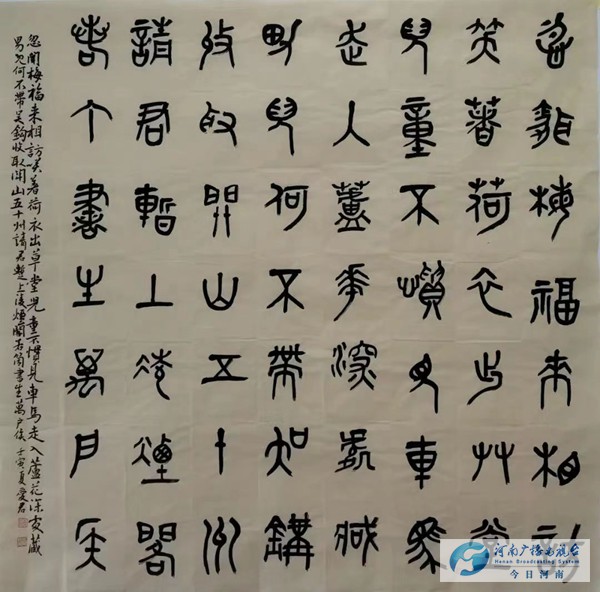 忽聞梅福來相訪
笑著荷衣出艸堂
兒童不慣見車馬
走入蘆花深處藏
男兒何不帶吳鉤
收取關山五十州
請君暫上凌煙閣
若个書生萬戶侯
忽聞梅福来相訪笑著荷衣出草堂兒童不慣見車馬走入蘆花深處藏
男兒何不帶吴鈎收取關山五十州請君暫上凌煙閣若箇書生萬户侯 壬寅夏愛君
河南广播电视台
Henan Broadcasting System
今日河南